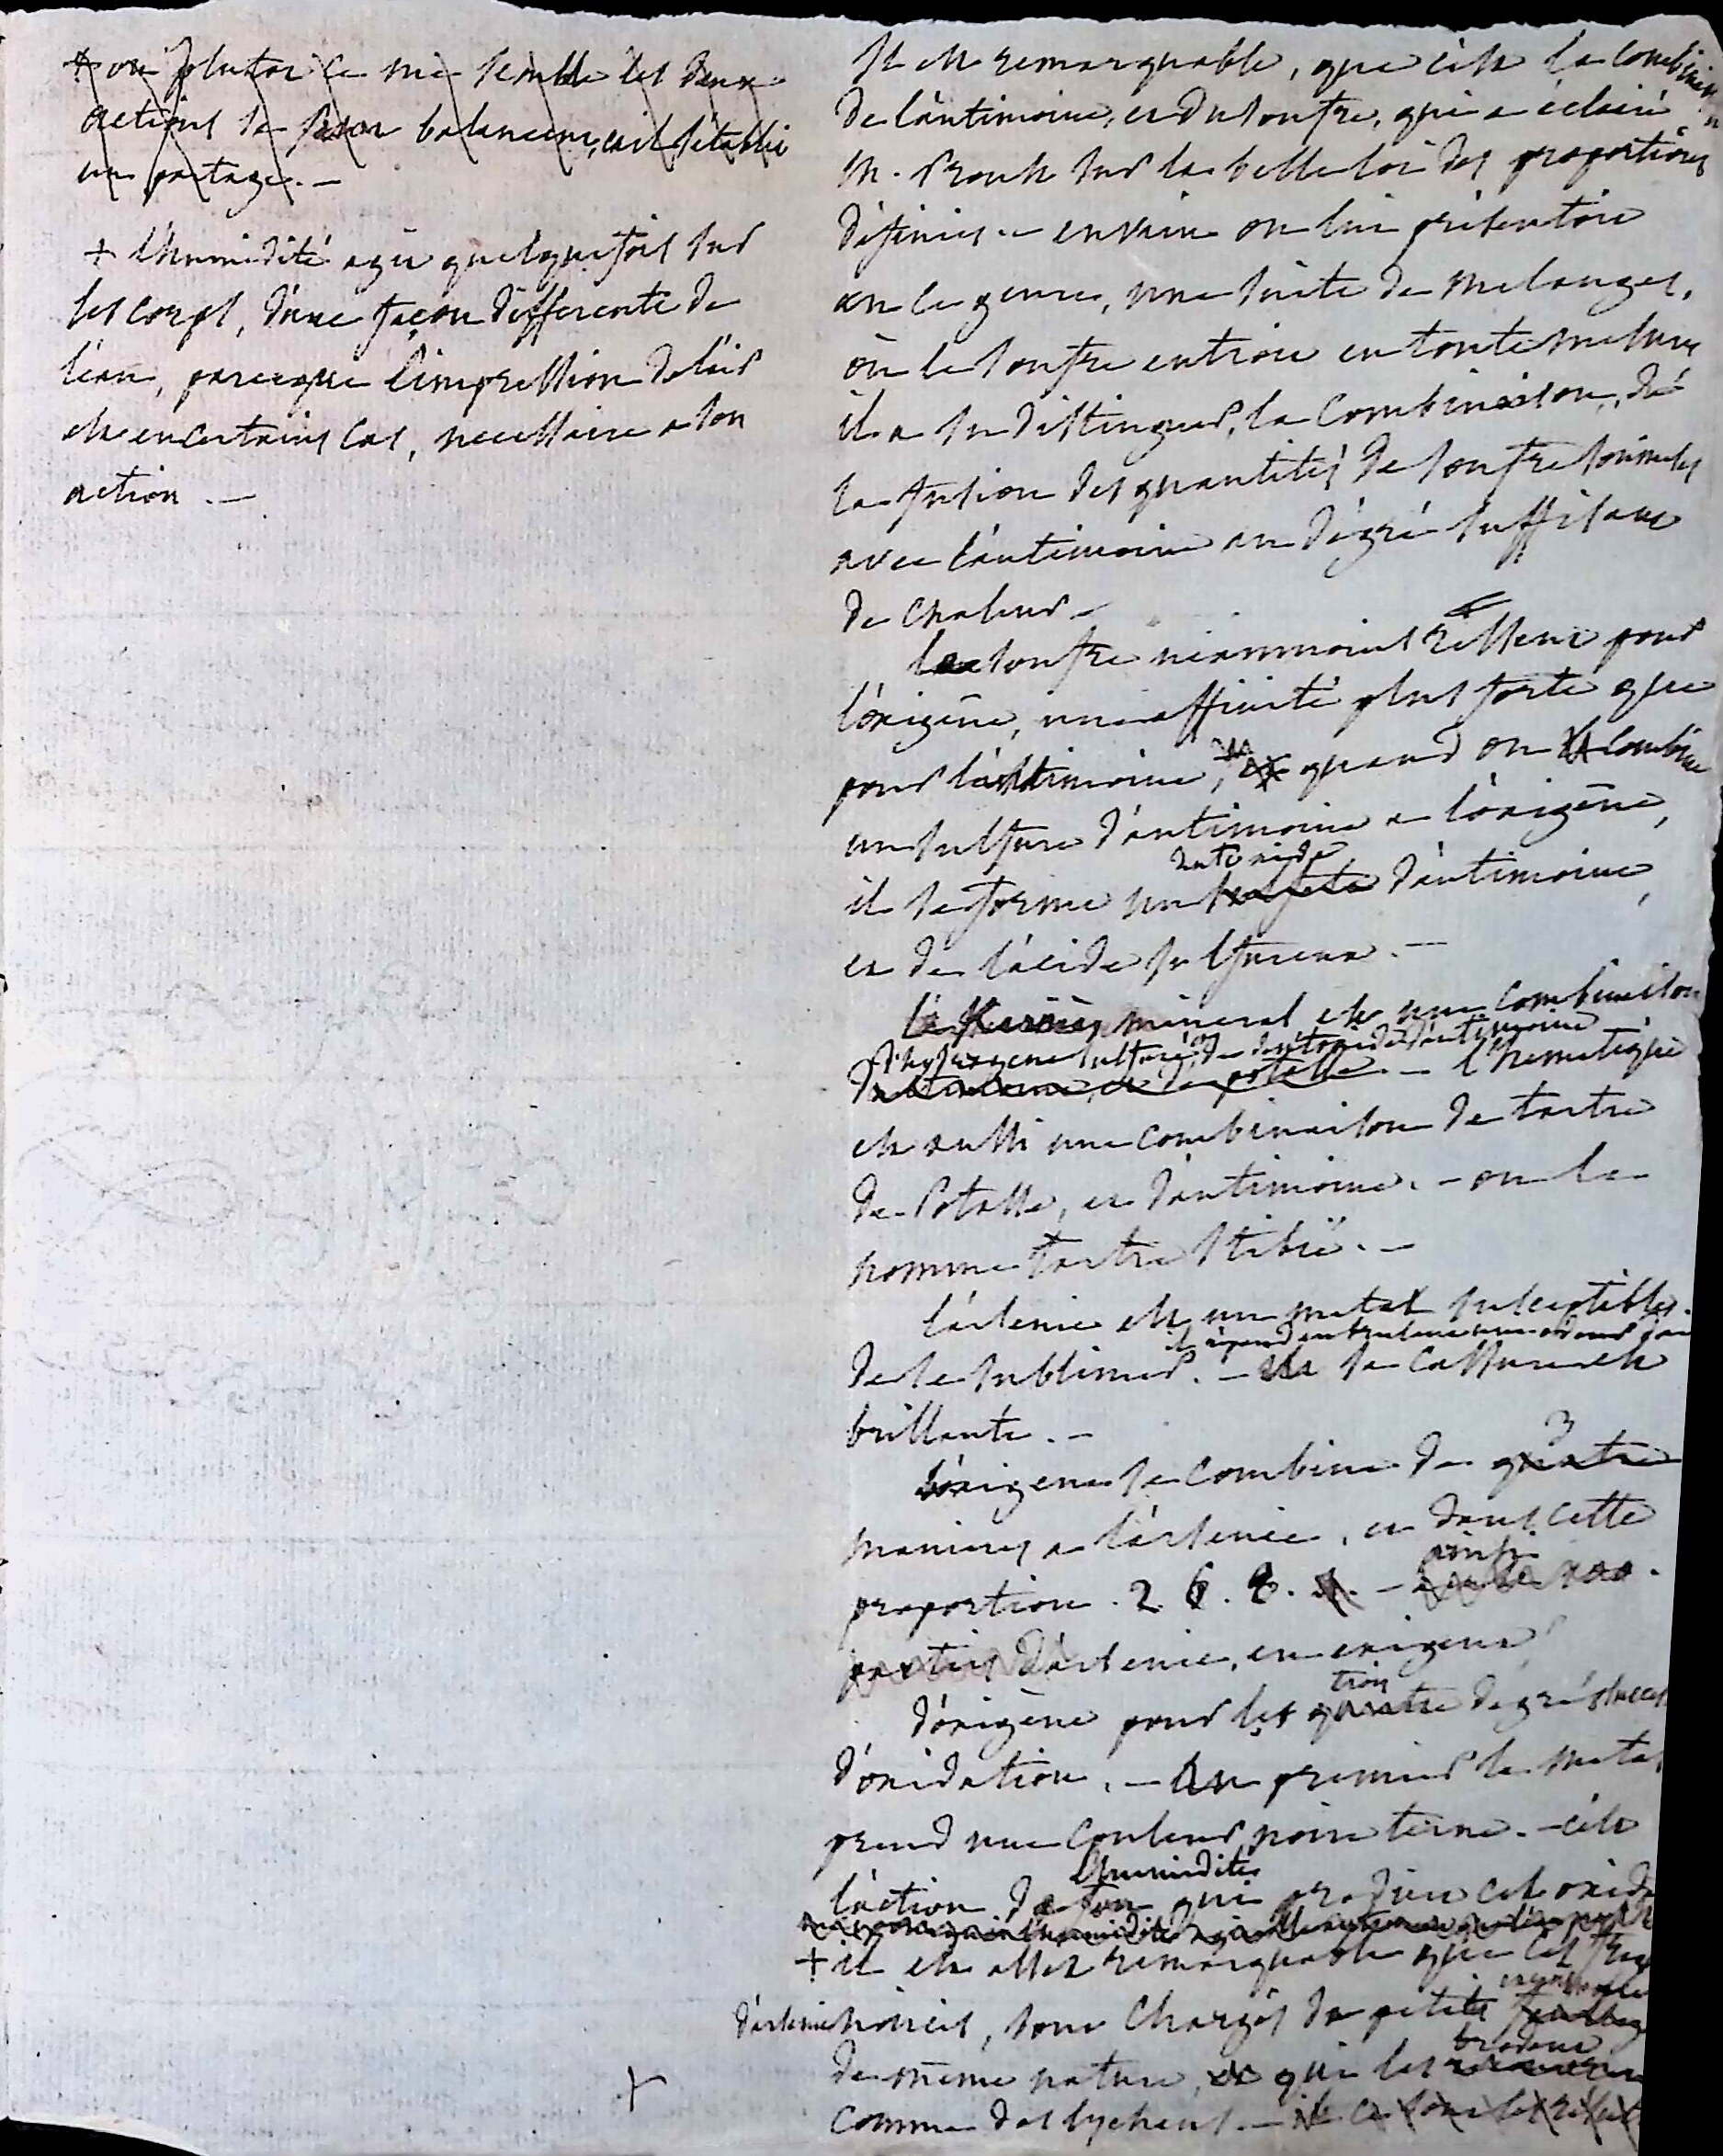 + ou plutot ce me semble les deux
actions se balancent, et il s'établi
un partage. —
+ l'humidité agit quelquefois sur
les corps, d'une façon differente de
l'eau, parceque l'impression de l'air
est en certains cas, necessaire a son
action. —
Il est remarquable, que c'est la combinaison
de l'antimoine, et du soufre, qui a éclairé
M. Proust sur la belle loi des proportions
définies. — envain on lui présentoit
en ce genre, une suite de melanges,
où le soufre entroit en toute mesure
il a su distinguer, la combinaison, de
la fusion des quantités de soufre soumises
avec l'antimoine au dégré suffisant
de chaleur —
le soufre néanmoins ressent pour
l'oxigène, une affinité plus forte que
pour l'antimoine, quand on combine
un sulfure d'antimoine a l'oxigène,
deutoxide
il se forme un d'antimoine,
et de l'acide sulfureux. —
le Kermès mineral est une combinaison
d'hydrogene sulfuré, de deutoxide d'antimoine
d'antimoine, et de potasse. — l'hemetique
est aussi une combinaison de tartre
de Potasse, et d'antimoine. — on le
nomme tartre stibié. —
l'arsenic est un metal susceptible
il répand en brulant une odeur d'ail
de se sublimer. — sa cassure est
brillante. —
3
l'oxigene se combine de quatre
manieres a l'arsenic, et dans cette
proportion. 2. 6. 8. —
parties d'arsenic, en oxigene
trois
d'oxigène pour les quatre degrés success
d'oxidation. — au premier le metal
prend une couleur noire terne. — c'est
l'humidité
l'action de l'eau qui produit cet oxide
+ il est assez remarquable que ces
d'arsenic noircis, sont chargés de petits
brodent
de même nature, et qui les
comme des lychens. — ce sont
+